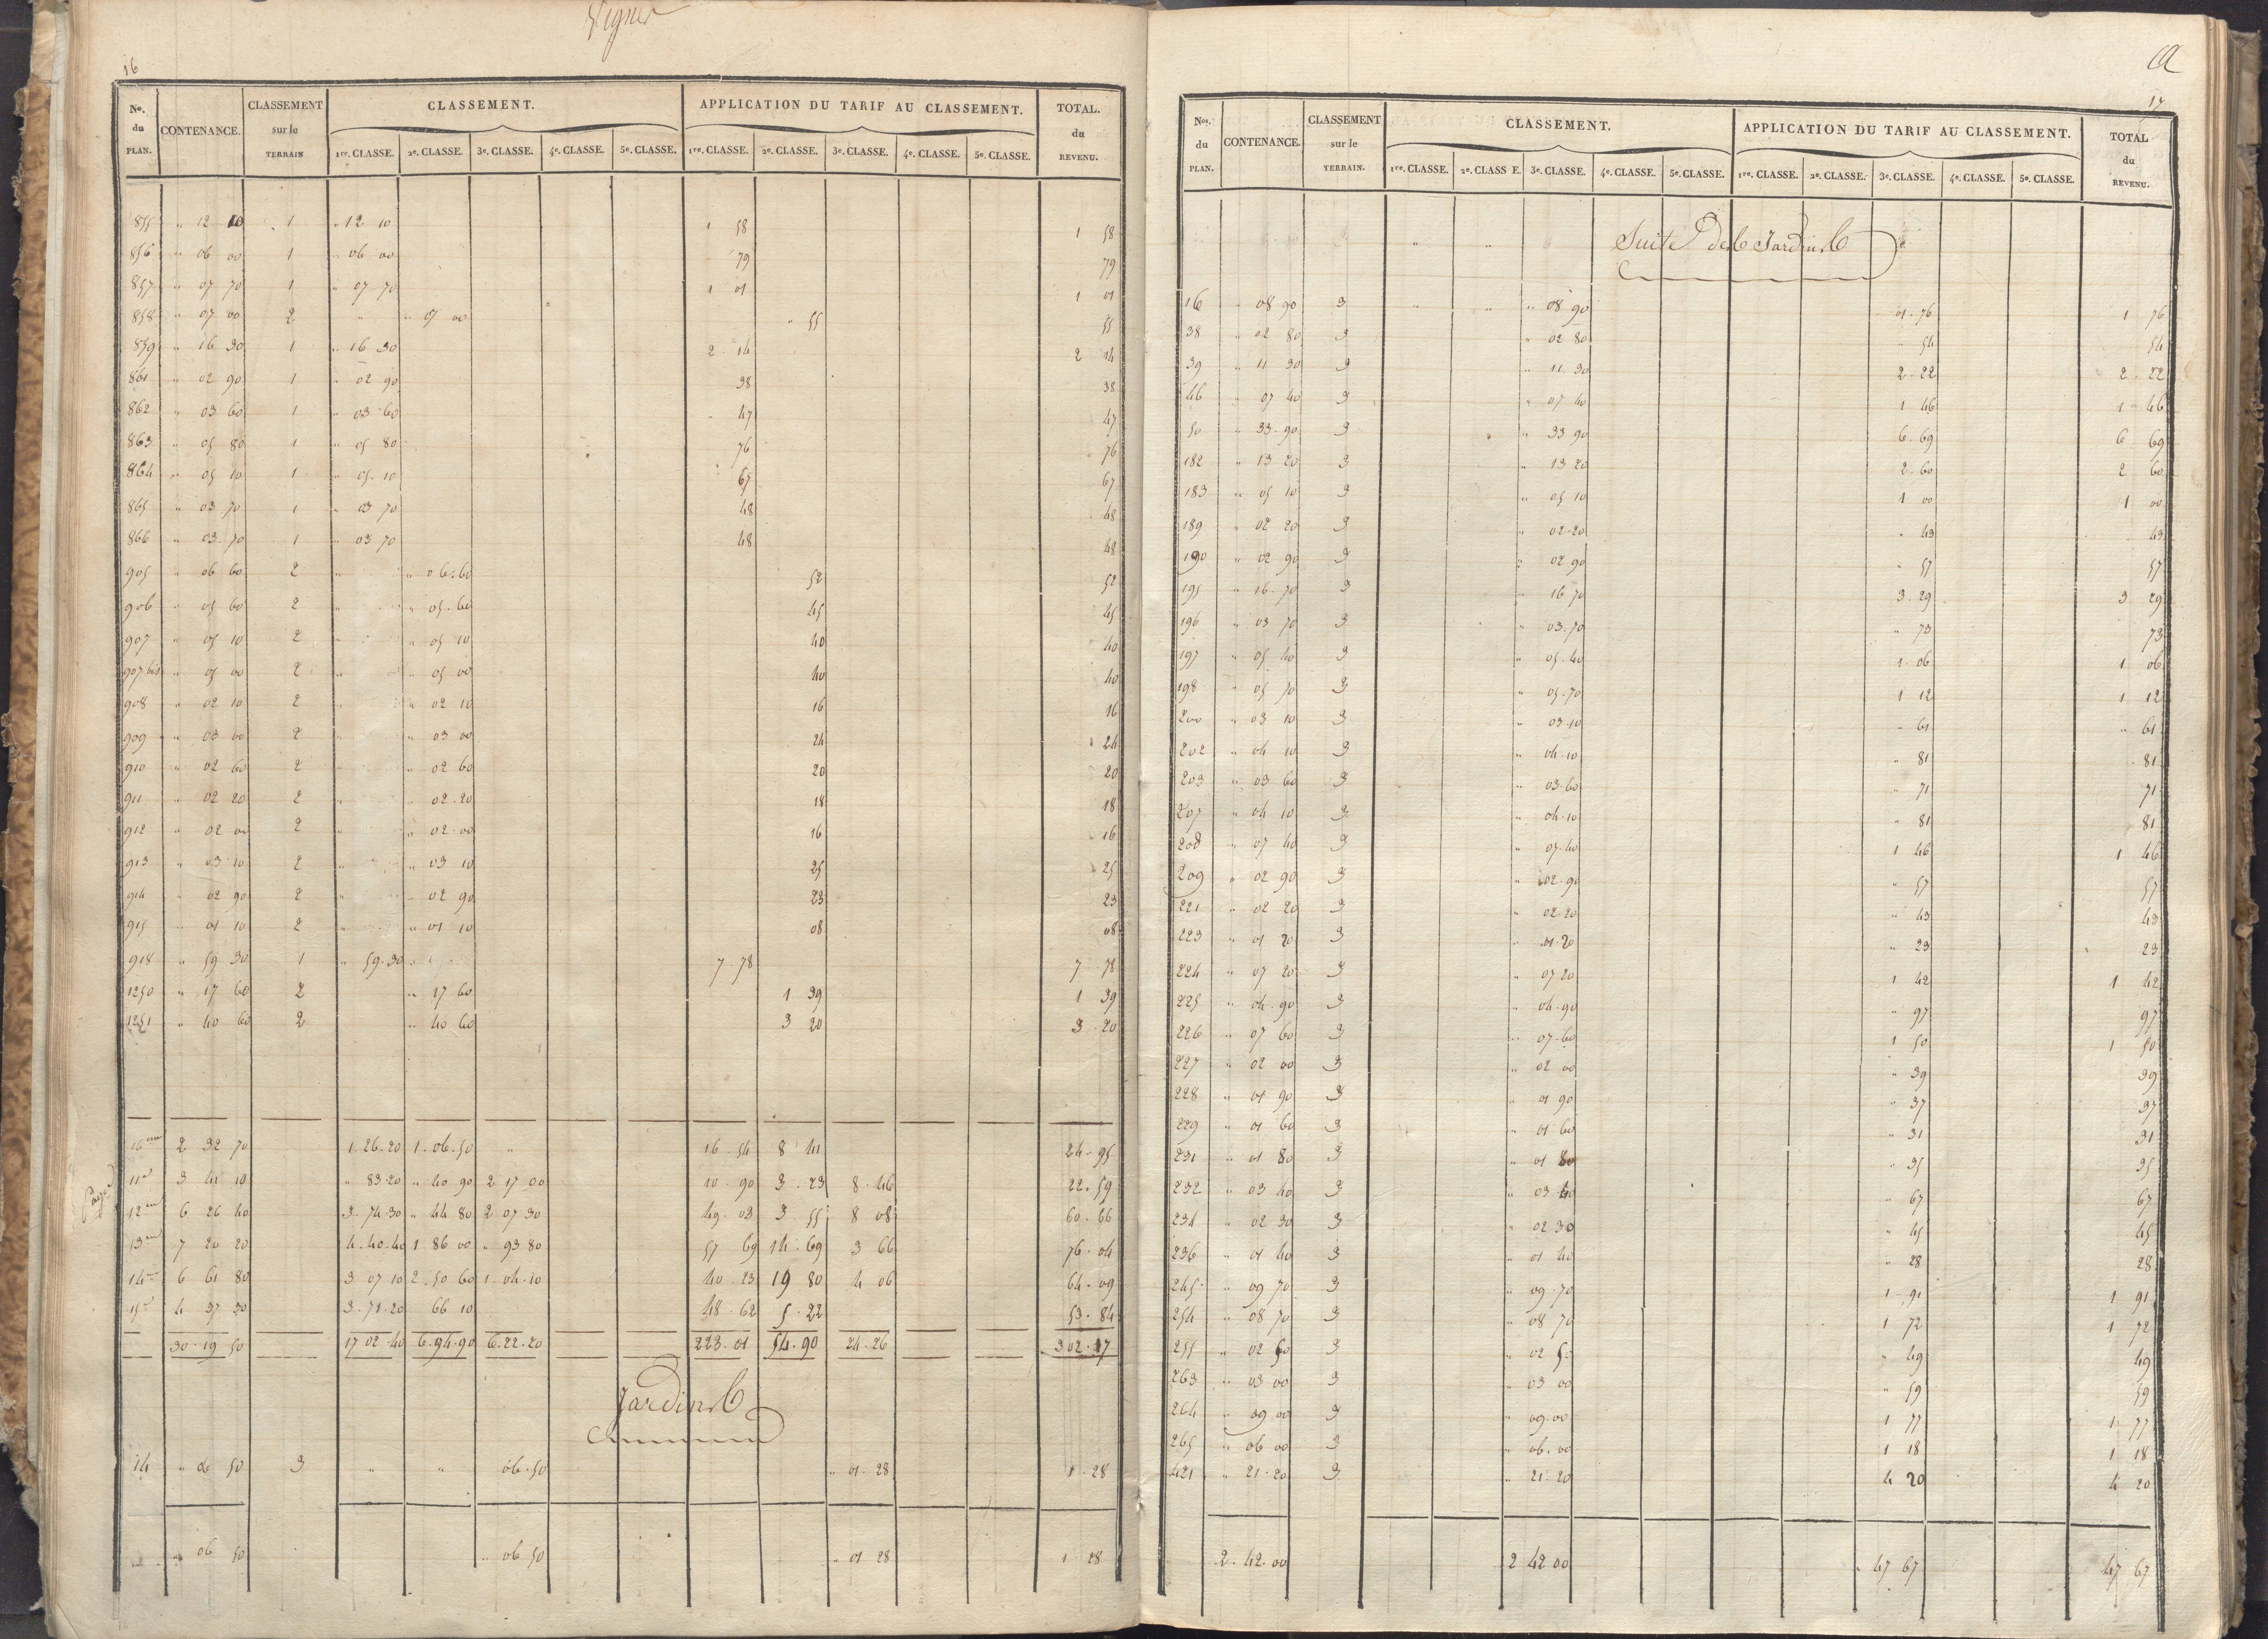 Vignes
16
No. du PLAN. CONTENANCE. CLASSEMENT sur le TERRAIN CLASSEMENT. APPLICATION DU TARIF AU CLASSEMENT. TOTAL. du REVENU.
1re. CLASSE. 2e. CLASSE. 3e. CLASSE. 4e. CLASSE. 5e. CLASSE. 1re. CLASSE. 2e. CLASSE. 3e. CLASSE. 4e. CLASSE. 5e. CLASSE.
855 " 12 10 1 " 12 10 1 58 1 58
856 " 06 00 1 " 06 00 79 79
857 " 07 70 1 " 07 70 1 01 1 01
858 " 07 00 2 " " 07 00 " 55 55
859 " 16 30 1 " 16 30 2 14 2 14
861 " 02 90 1 " 02 90 38 38
862 " 03 60 1 " 03 60 47 47
863 " 05 80 1 " 05 80 76 76
864 " 05 10 1 " 05 10 67 67
865 " 03 70 1 " 03 70 48 48
866 " 03 70 1 " 03 70 48 48
905 " 06 60 2 " " 06 60 52 52
906 " 05 60 2 " " 05 60 45 45
907 " 05 10 2 " " 05 10 40 40
907 bis " 05 00 2 " " 05 00 40 40
908 " 02 10 2 " " 02 10 16 16
909 " 03 00 2 " " 03 00 24 24
910 " 02 60 2 " " 02 60 20 20
911 " 02 20 2 " " 02 20 18 18
912 " 02 00 2 " " 02 00 16 16
913 " 03 10 2 " " 03 10 25 25
914 " 02 90 2 " " 02 90 23 23
915 " 01 10 2 " " 01 10 08 08
918 " 59 30 1 " 59 30 " 7 78 7 78
1250 " 17 60 2 " 17 60 1 39 1 39
1251 " 40 60 2 " 40 60 3 20 3 20
Pages
10 2 32 70 1 26 20 1 06 50 " 16 54 8 41 24 95
11 3 41 10 " 83 20 " 40 90 2 17 00 10 90 3 23 8 46 22 59
12 6 26 40 3 74 30 " 44 80 2 07 30 49 03 3 55 8 08 60 66
13 7 20 20 4 40 40 1 86 00 " 93 80 57 69 14 69 3 66 76 04
14 6 61 80 3 07 10 2 50 60 1 04 10 40 23 19 80 4 06 64 09
15 4 37 30 3 71 20 66 10 48 62 5 22 53 84
30 19 50 17 02 40 6 94 90 6 22 20 223 01 54 90 24 26 302 17
Jardins
14 " 06 50 3 " " 06 50 " 01 28 1 28
" 06 50 " 06 50 " 01 28 1 28
17
Nos. du PLAN. CONTENANCE. CLASSEMENT sur le TERRAIN. CLASSEMENT. APPLICATION DU TARIF AU CLASSEMENT. TOTAL du REVENU.
1re. CLASSE. 2e. CLASS E. 3e. CLASSE. 4e. CLASSE. 5e. CLASSE. 1re. CLASSE. 2e. CLASSE. 3e. CLASSE. 4e. CLASSE. 5e. CLASSE.
Suite des Jardins
16 " 08 90 3 " " " 08 90 01 76 1 76
38 " 02 80 3 " 02 80 " 54 54
39 " 11 30 3 " 11 30 2 22 2 22
46 " 07 40 3 " 07 40 1 46 1 46
50 " 33 90 3 " 33 90 6 69 6 69
182 " 13 20 3 " 13 20 2 60 2 60
183 " 05 10 3 " 05 10 1 00 1 00
189 " 02 20 3 " 02 20 " 43 43
190 " 02 90 3 " 02 90 " 57 57
195 " 16 70 3 " 16 70 3 29 3 29
196 " 03 70 3 " 03 70 " 73 73
197 " 05 40 3 " 05 40 1 06 1 06
198 " 05 70 3 " 05 70 1 12 1 12
200 " 03 10 3 " 03 10 " 61 " 61
202 " 04 10 3 " 04 10 " 81 81
203 " 03 60 3 " 03 60 " 71 71
207 " 04 10 3 " 04 10 " 81 81
208 " 07 40 3 " 07 40 1 46 1 46
209 " 02 90 3 " 02 90 " 57 57
221 " 02 20 3 " 02 20 " 43 43
223 " 01 20 3 " 01 20 " 23 23
224 " 07 20 3 " 07 20 1 42 1 42
225 " 04 90 3 " 04 90 " 97 97
226 " 07 60 3 " 07 60 1 50 1 50
227 " 02 00 3 " 02 00 " 39 39
228 " 01 90 3 " 01 90 " 37 37
229 " 01 60 3 " 01 60 " 31 31
231 " 01 80 3 " 01 80 " 35 35
232 " 03 40 3 " 03 40 " 67 67
234 " 02 30 3 " 02 30 " 45 45
236 " 01 40 3 " 01 40 " 28 28
245 " 09 70 3 " 09 70 1 91 1 91
254 " 08 70 3 " 08 70 1 72 1 72
255 " 02 50 3 " 02 50 " 49 49
263 " 03 00 3 " 03 00 " 59 59
264 " 09 00 3 " 09 00 1 77 1 77
265 " 06 00 3 " 06 00 1 18 1 18
421 " 21 20 3 " 21 20 4 20 4 20
2 42 00 2 42 00 47 67 47 67